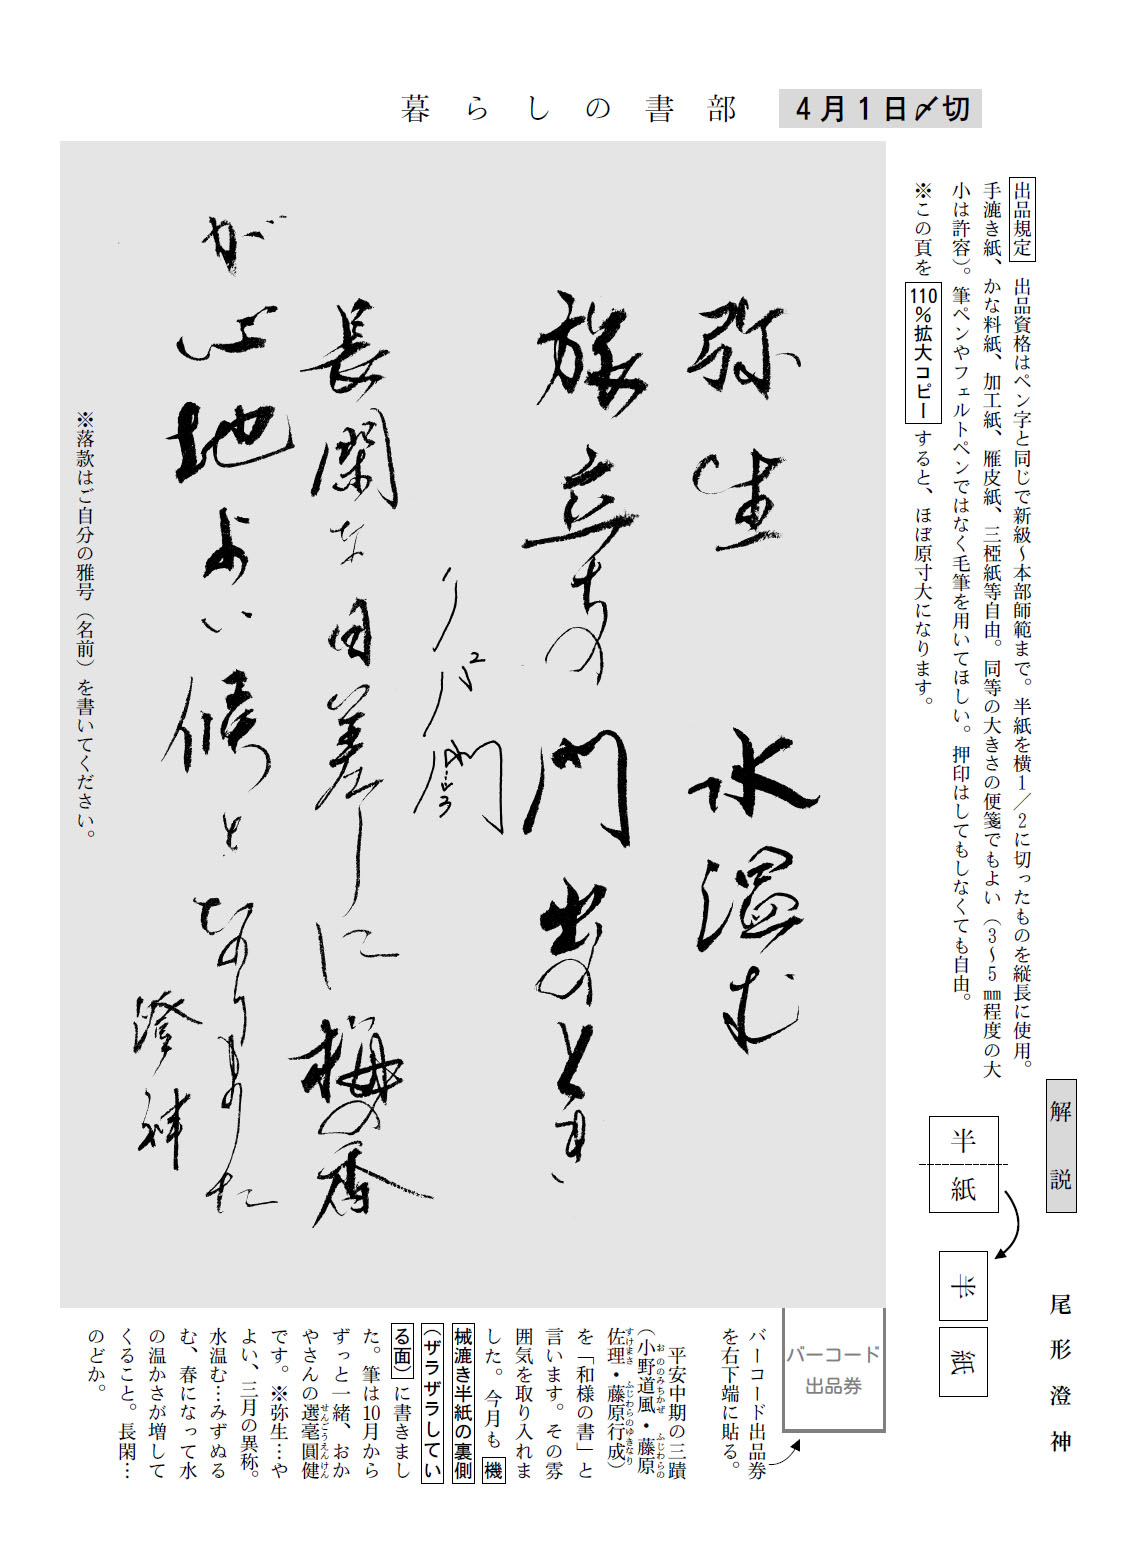 暮らしの書部
4月1日〆切
出品規定 出品資格はペン字と同じで新級～本部師範まで。半紙を横1／2に切ったものを縦長に使用。
手漉き紙、かな料紙、加工紙、雁皮紙、三椏紙等自由。同等の大きさの便箋でもよい（3～5㎜程度の大
小は許容）。筆ペンやフェルトペンではなく毛筆を用いてほしい。押印はしてもしなくても自由。
※この頁を110％拡大コピーすると、ほぼ原寸大になります。
弥生 水温む
旅立ちの門出のとき
くぐり門
長閑な日差しに梅の香
が心地よい候となりました
澄神
※落款はご自分の雅号（名前）を書いてください。
半紙
半
紙
解説
尾形澄神
バーコード
出品券
バーコード出品券
を右下端に貼る。
平安中期の三蹟
（小野道風・藤原
おののみちかぜ ふじわらの
佐理・藤原行成）
すけまさ ふじわらのゆきなり
を「和様の書」と
言います。その雰
囲気を取り入れま
した。今月も機
械漉き半紙の裏側
（ザラザラしてい
る面）に書きまし
た。筆は10月から
ずっと一緒、おか
やさんの選毫圓健
せんごうえんけん
です。※弥生…や
よい、三月の異称。
水温む…みずぬる
む、春になって水
の温かさが増して
くること。長閑…
のどか。